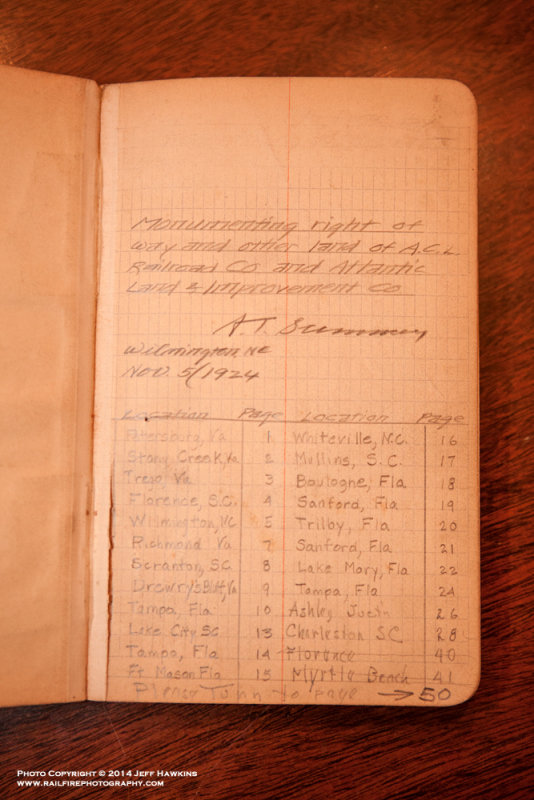 Monumenting right of
way and other land of A.C.L.
Railroad Co and Atlantic
Land & Improvement Co
A.T. Summey
Wilmington NC
Nov. 5/1924
Location Page Location Page
Petersburg, Va 1 Whiteville, N.C. 16
Stony Creek, Va 2 Mullins, S.C. 17
Trego Va 3 Boulogne, Fla 18
Florence, S.C. 4 Sanford, Fla 19
Wilmington, NC 5 Trilby, Fla 20
Richmond Va 7 Sanford, Fla 21
Scranton, SC 8 Lake Mary, Fla 22
Drewry's Bluff, Va 9 Tampa, Fla 24
Tampa Fla 10 Ashley Junctn 26
Lake City SC 13 Charleston S.C. 28
Tampa, Fla 14 Florence 40
Ft Mason Fla 15 Myrtle Beach 41
Please Turn to page → 50
Photo Copyright © 2014 Jeff Hawkins
www.railfirephotography.com